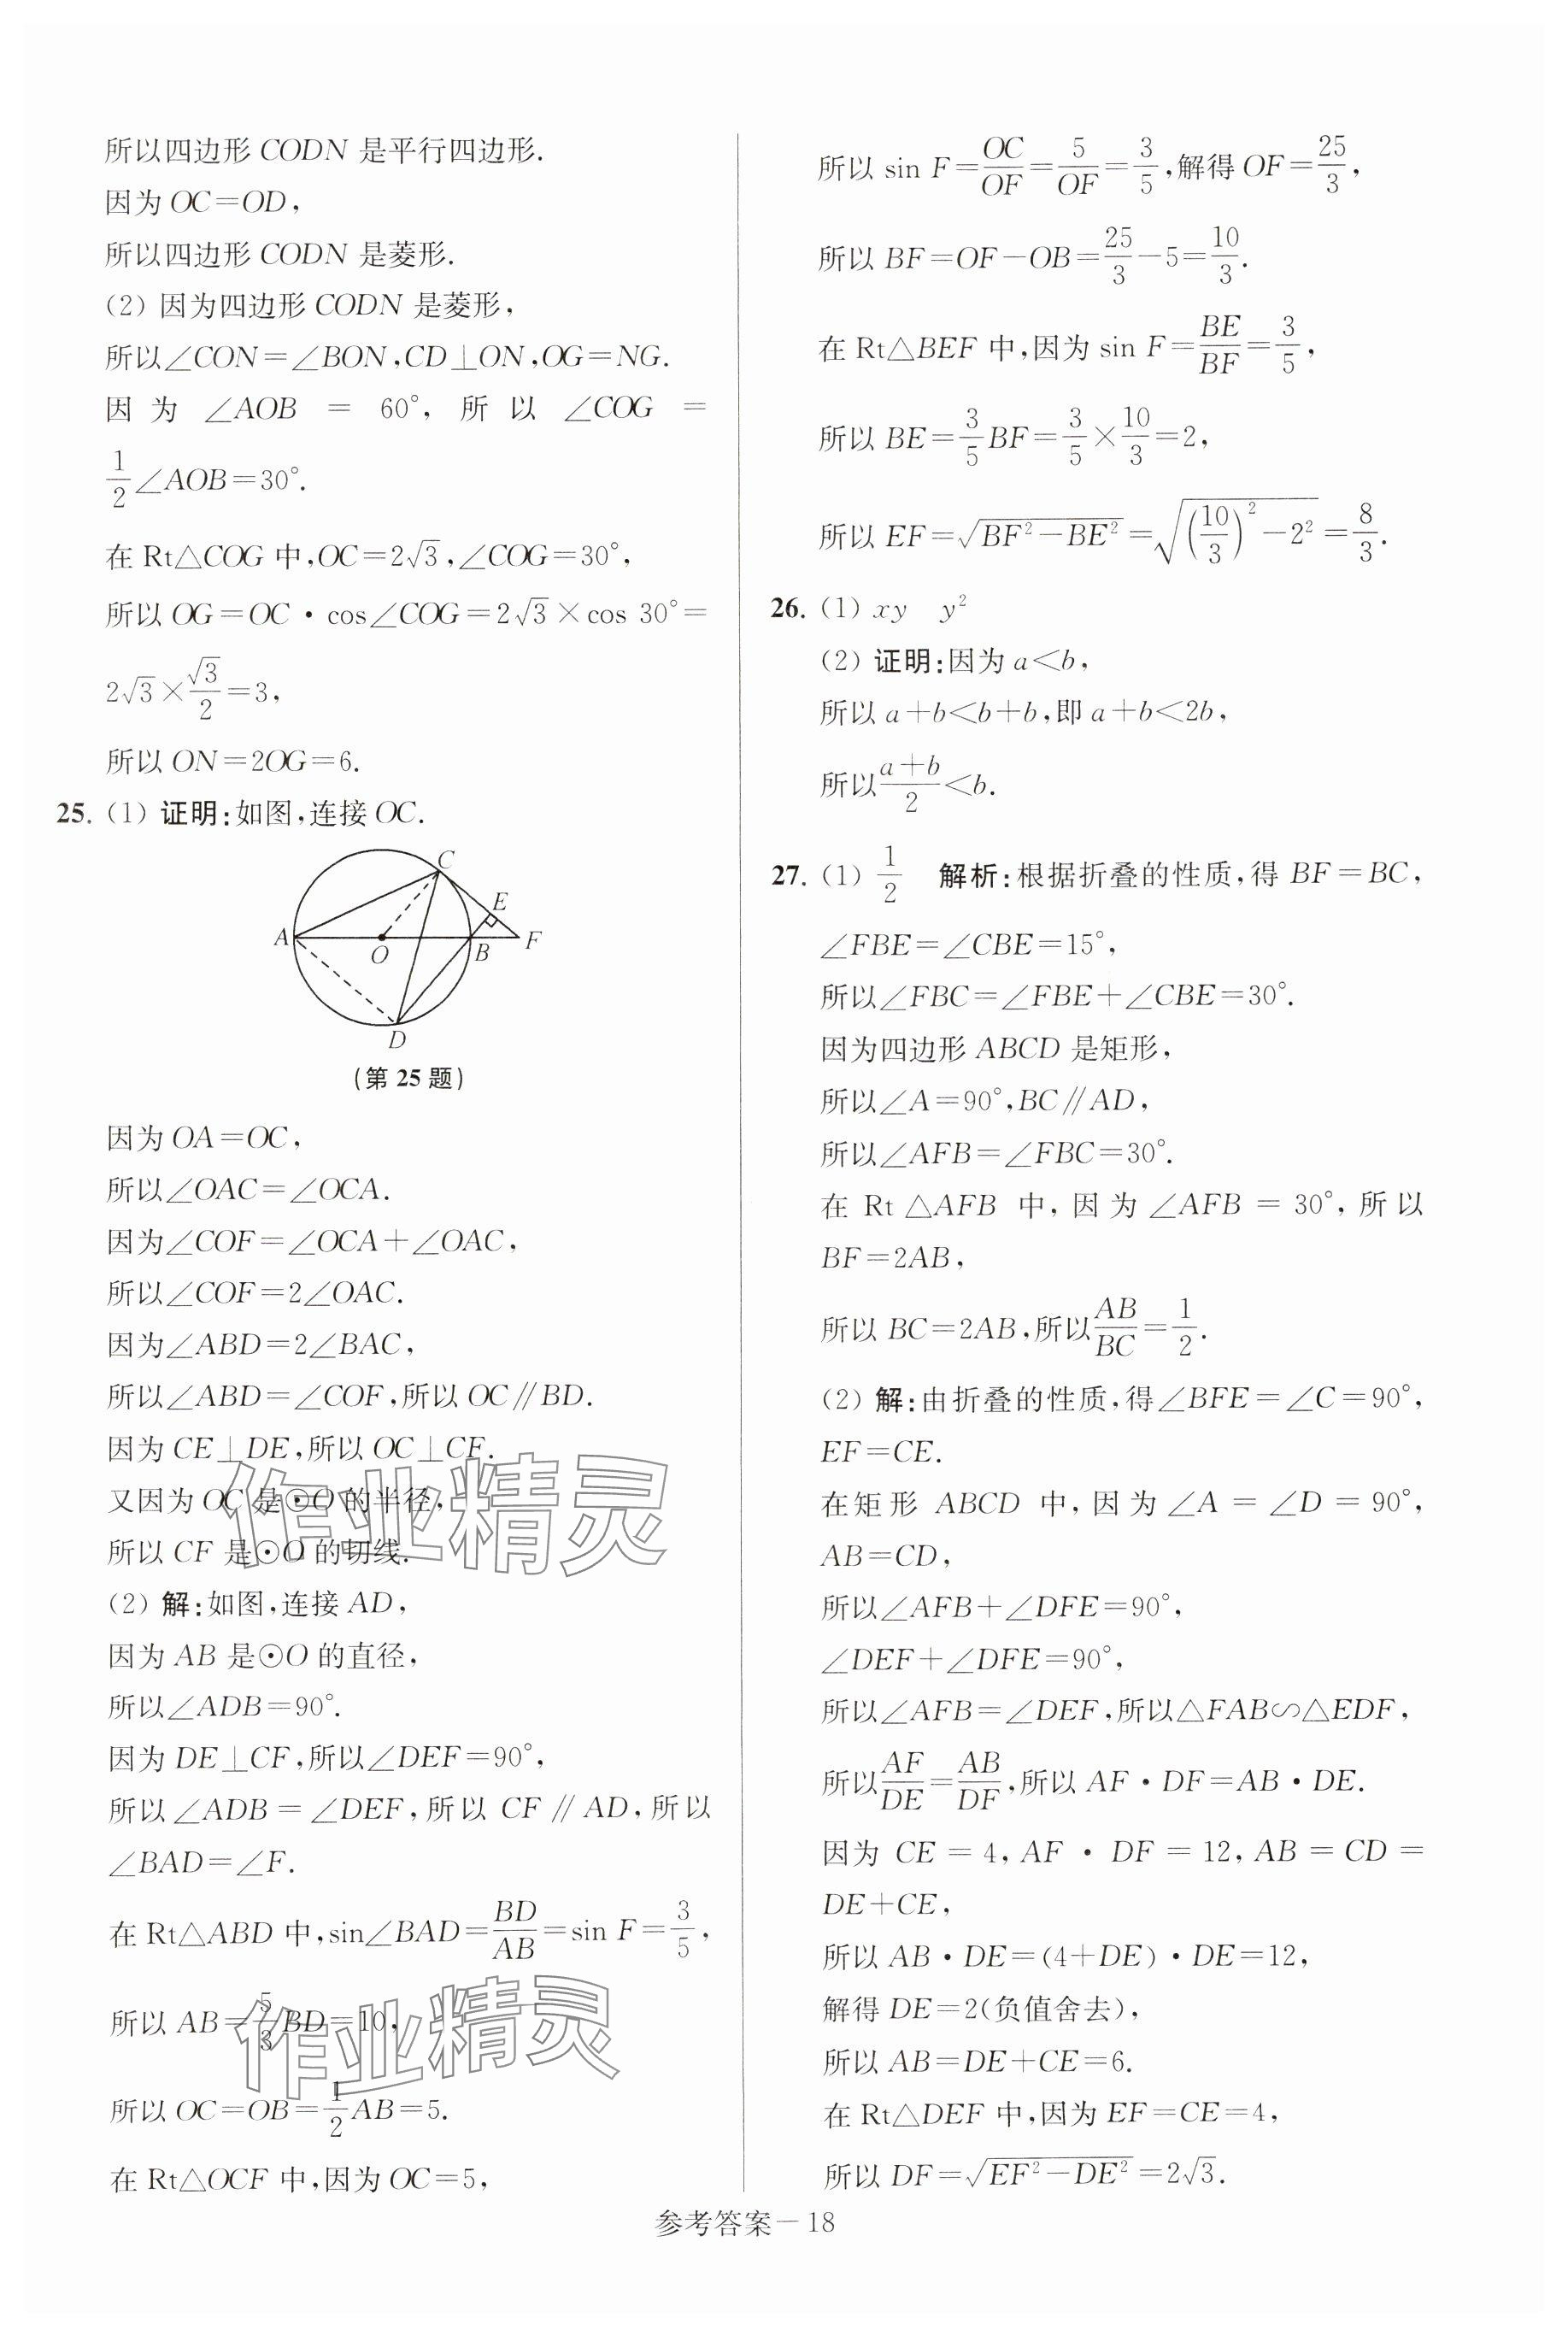 所以四边形 CODN 是平行四边形.
因为 OC=OD,
所以四边形 CODN 是菱形.
(2) 因为四边形 CODN 是菱形,
所以∠CON=∠BON,CD⊥ON,OG=NG.
因为 ∠AOB = 60°, 所以 ∠COG =
1/2∠AOB=30°.
在 Rt△COG 中,OC=2√3,∠COG=30°,
所以 OG=OC·cos∠COG=2√3×cos 30°=
2√3×√3/2=3,
所以 ON=2OG=6.
25. (1) 证明:如图,连接 OC.
C
E
A
O
B
F
D
(第 25 题)
因为 OA=OC,
所以∠OAC=∠OCA.
因为∠COF=∠OCA+∠OAC,
所以∠COF=2∠OAC.
因为∠ABD=2∠BAC,
所以∠ABD=∠COF,所以 OC∥BD.
因为 CE⊥DE,所以 OC⊥CF.
又因为 OC 是⊙O 的半径,
所以 CF 是⊙O 的切线.
作业精灵
(2) 解:如图,连接 AD,
因为 AB 是⊙O 的直径,
所以∠ADB=90°.
因为 DE⊥CF,所以∠DEF=90°,
所以∠ADB=∠DEF,所以 CF∥AD,所以
∠BAD=∠F.
在 Rt△ABD 中,sin∠BAD=BD/AB=sin F=3/5,
所以 AB=5/3BD=10,
作业精灵
所以 OC=OB=1/2AB=5.
在 Rt△OCF 中,因为 OC=5,
所以 sin F=OC/OF=5/OF=3/5,解得 OF=25/3,
所以 BF=OF-OB=25/3-5=10/3.
在 Rt△BEF 中,因为 sin F=BE/BF=3/5,
所以 BE=3/5BF=3/5×10/3=2,
所以 EF=√(BF²-BE²)=√((10/3)²-2²)=8/3.
26. (1) xy y²
(2) 证明:因为 a<b,
所以 a+b<b+b,即 a+b<2b,
所以(a+b)/2<b.
27. (1) 1/2 解析:根据折叠的性质,得 BF=BC,
∠FBE=∠CBE=15°,
所以∠FBC=∠FBE+∠CBE=30°.
因为四边形 ABCD 是矩形,
所以∠A=90°,BC∥AD,
所以∠AFB=∠FBC=30°.
在 Rt △AFB 中, 因为 ∠AFB = 30°, 所以
BF=2AB,
所以 BC=2AB,所以AB/BC=1/2.
(2) 解:由折叠的性质,得∠BFE=∠C=90°,
EF=CE.
在矩形 ABCD 中, 因为 ∠A = ∠D = 90°,
AB=CD,
所以∠AFB+∠DFE=90°,
∠DEF+∠DFE=90°,
所以∠AFB=∠DEF,所以△FAB∽△EDF,
所以AF/DE=AB/DF,所以 AF·DF=AB·DE.
因为 CE = 4, AF · DF = 12, AB = CD =
DE+CE,
所以 AB·DE=(4+DE)·DE=12,
解得 DE=2(负值舍去),
所以 AB=DE+CE=6.
在 Rt△DEF 中,因为 EF=CE=4,
所以 DF=√(EF²-DE²)=2√3.
参考答案-18